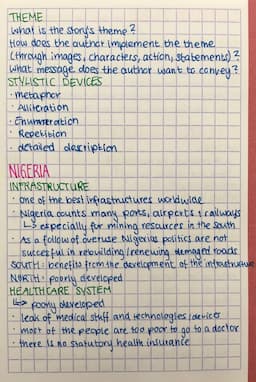 THEME
What is the story's theme?
How does the author implement the theme
(through images, characters, action, statements)?
What message does the author want to convey?
STYLISTIC DEVICES
· metaphor
· Alliteration
· Enumeration
· Repetition
· detailed description
NIGERIA
INFRASTRUCTURE
· one of the best infrastructures worldwide
· Nigeria counts many ports, airports & railways
↳ especially for mining resources in the South
· As a follow of overuse Nigerias politics are not
succesful in rebuilding/renewing damaged roads
SOUTH: benefits from the development of the infrastructure
NORTH: poorly developed
HEALTHCARE SYSTEM
↳ poorly developed
· leak of medical stuff and technologies/devices
· most of the people are too poor to go to a doctor
· there is no statutory health insurance